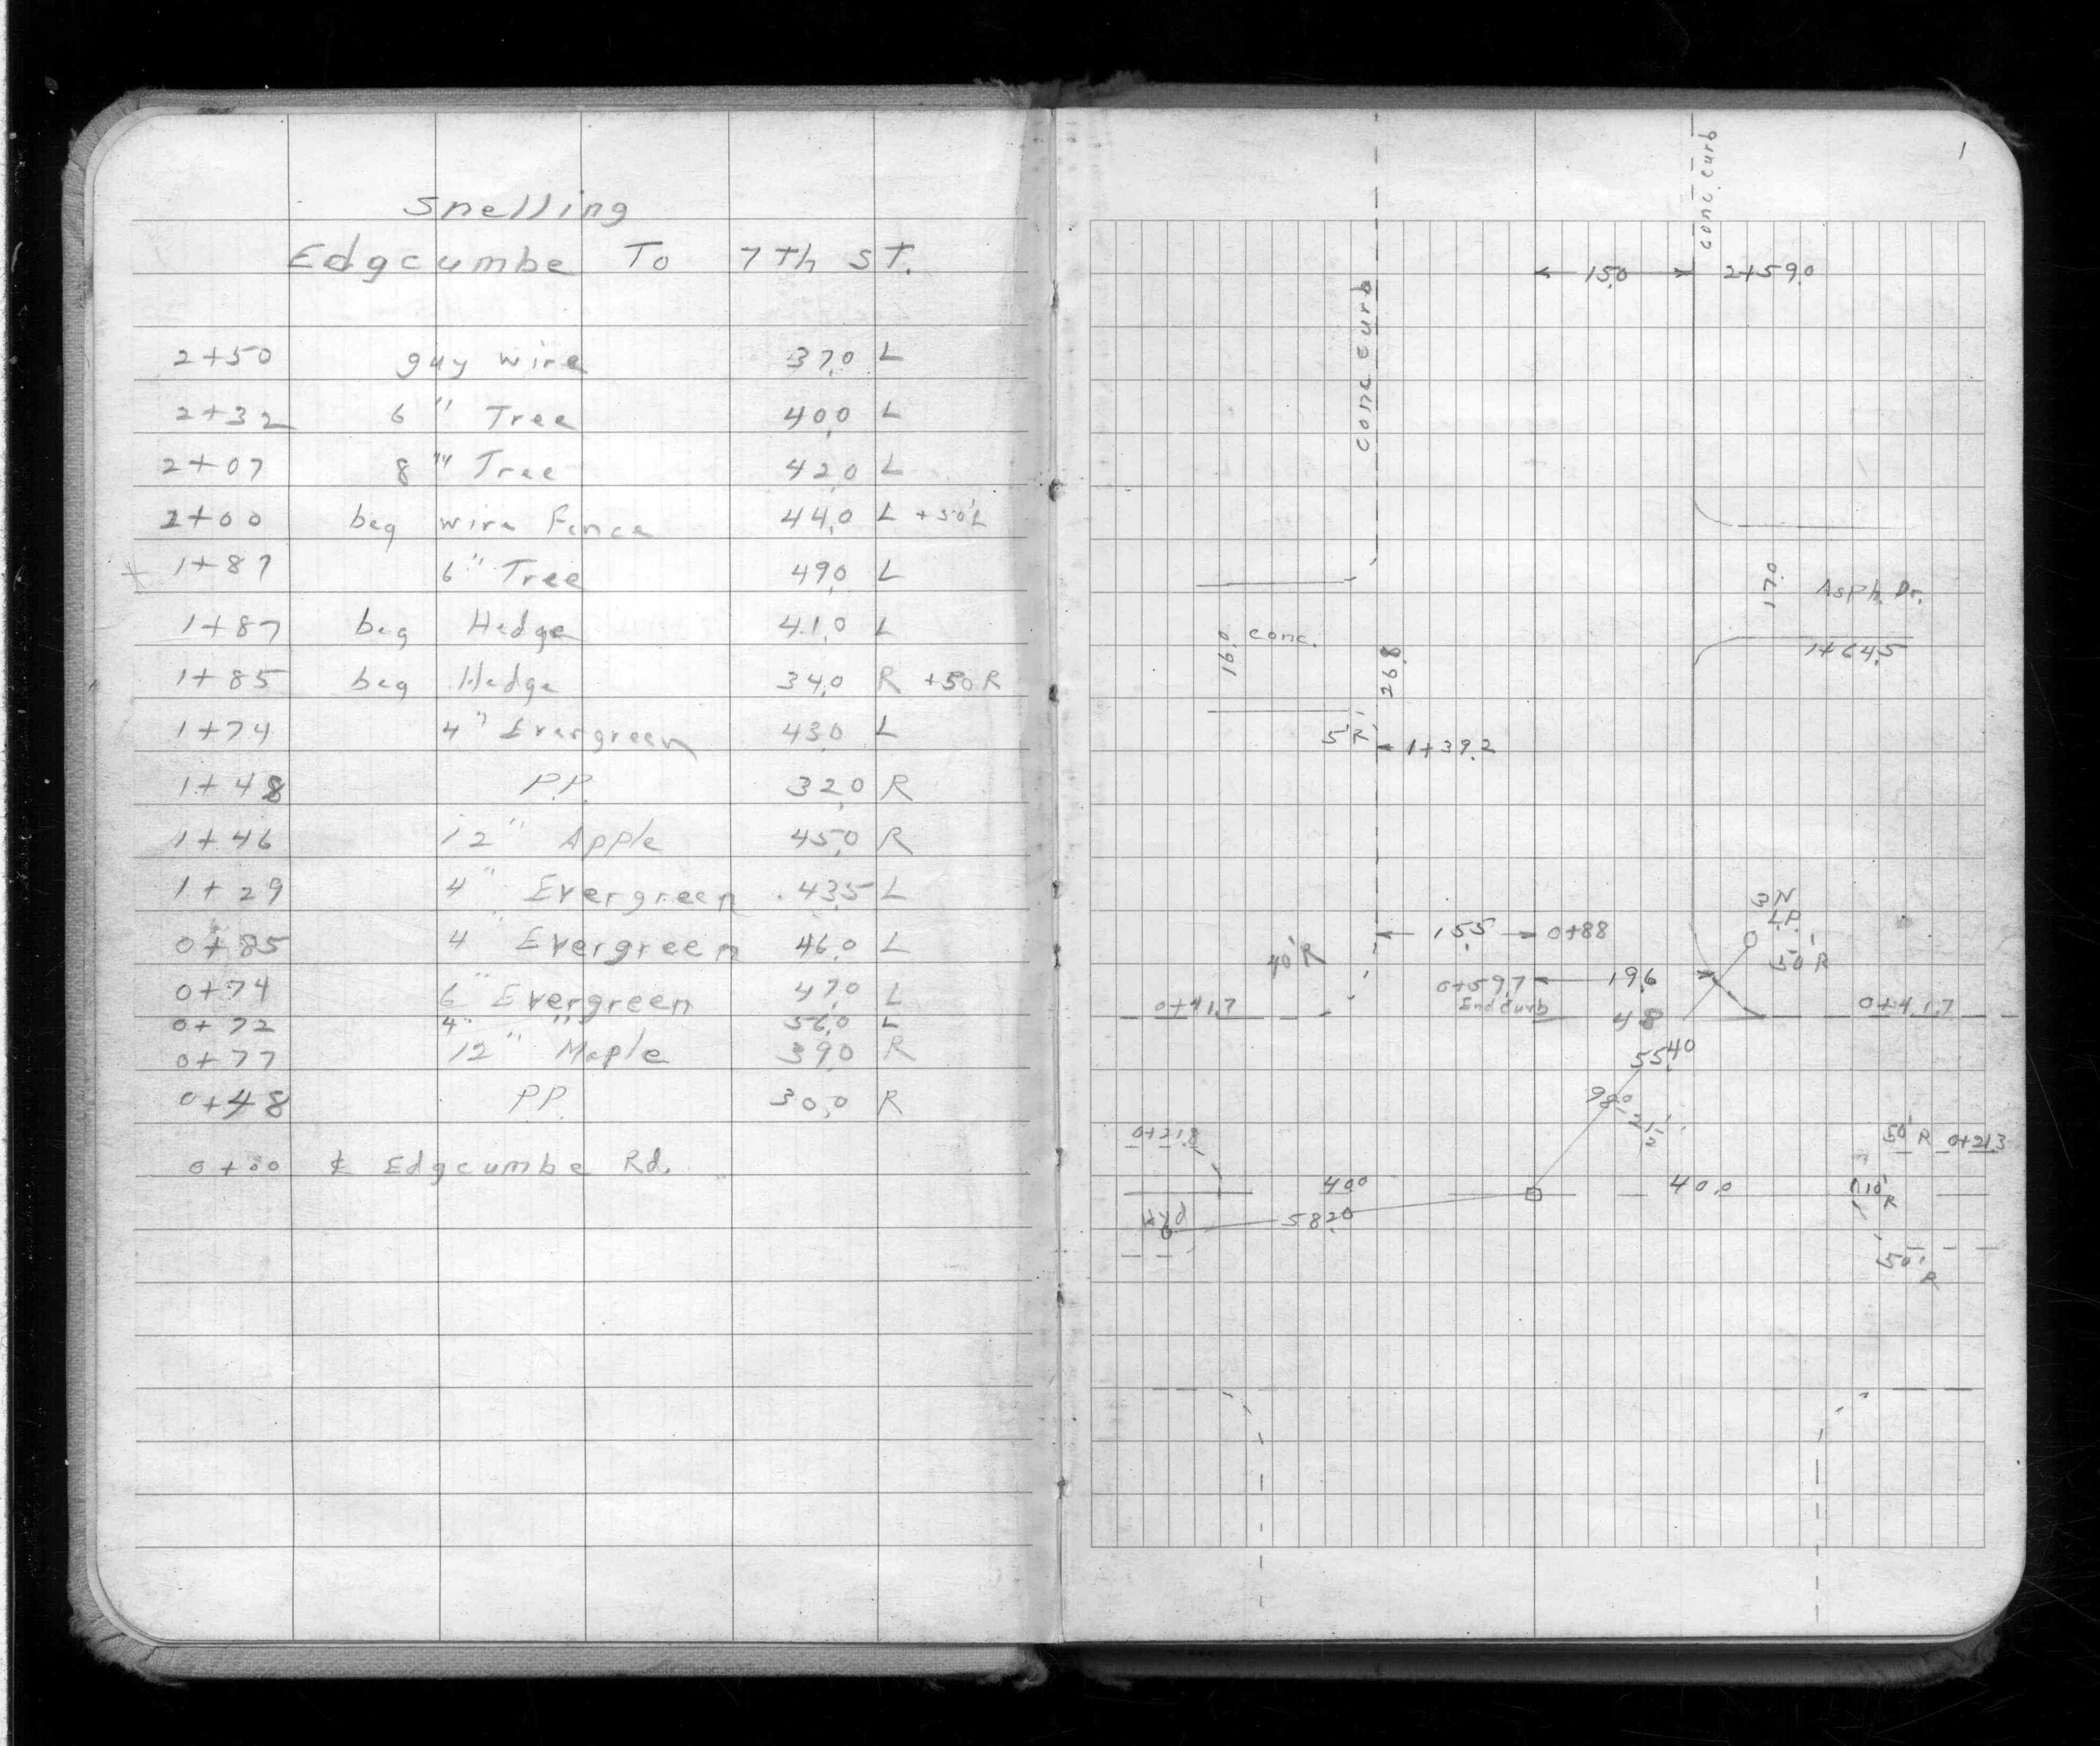 Snelling
Edgcumbe To 7Th ST.
2+50 guy wire 37.0 L
2+32 6" Tree 40.0 L
2+07 8" Tree 42.0 L
2+00 beg wire Fence 44.0 L +50'L
1+87 6" Tree 49.0 L
1+87 beg Hedge 41.0 L
1+85 beg Hedge 34.0 R +50 R
1+74 4" Evergreen 43.0 L
1+48 P.P. 32.0 R
1+46 12" Apple 45.0 R
1+29 4" Evergreen 43.5 L
0+85 4" Evergreen 46.0 L
0+74 6" Evergreen 47.0 L
0+72 4" " 56.0 L
0+77 12" Maple 39.0 R
0+48 P.P. 30.0 R
0+00 ₵ Edgcumbe Rd.
1
conc. curb
15.0 2+59.0
conc curb
17.0 Asph. Dr.
16.0 conc.
1+64.5
26.8
5'R 1+39.2
3N
L.P.
15.5 0+88
40'R 50'R
0+59.7 19.6
End curb
0+41.7 48 0+41.7
55.40
98.0
0+21.8 50'R 0+21.3
40.0 40.0 10'R
Hyd 58.20
50'R